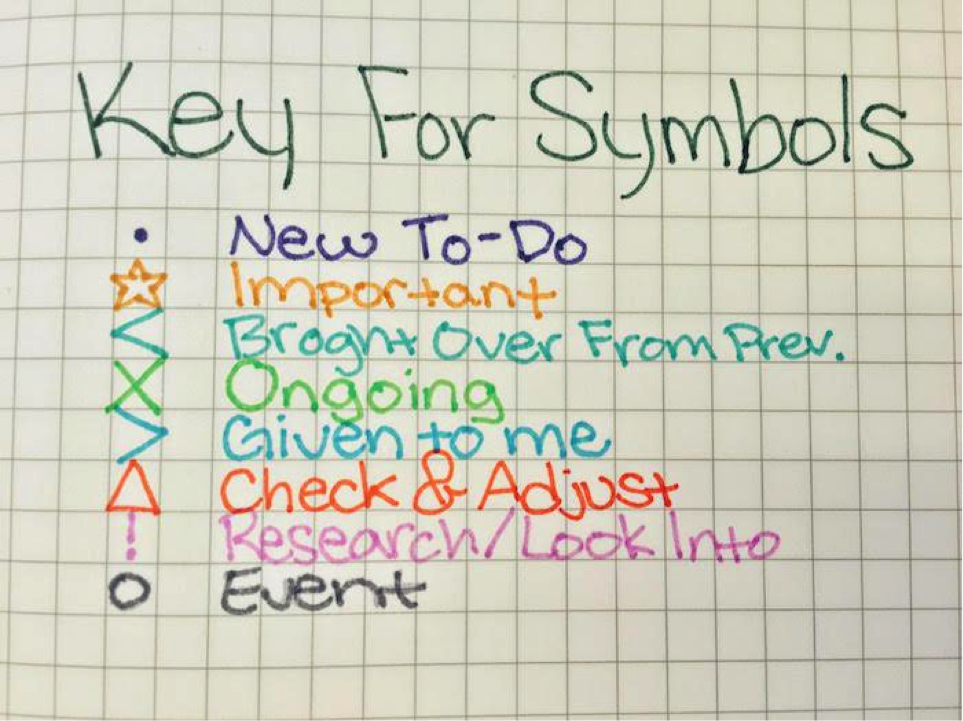 Key For Symbols
• New To-Do
☆ Important
< Broght Over From Prev.
X Ongoing
> Given to me
△ Check & Adjust
! Research/Look Into
○ Event